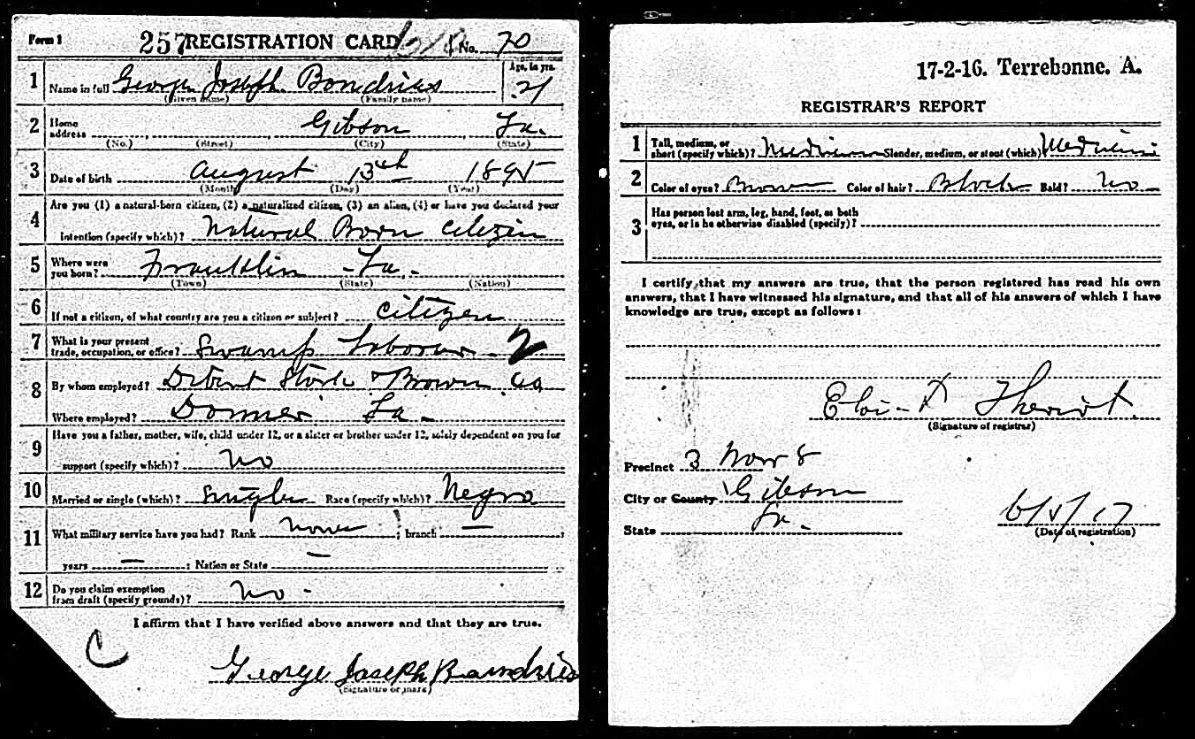 Form 1 257 REGISTRATION CARD No. 70
1 Name in full George Joseph Bondries Age, in yrs. 21
(Given name) (Family name)
2 Home address Gibson La.
(No.) (Street) (City) (State)
3 Date of birth August 13th 1895
(Month) (Day) (Year)
4 Are you (1) a natural-born citizen, (2) a naturalized citizen, (3) an alien, (4) or have you declared your
intention (specify which)? Natural Born Citizen
5 Where were you born? Franklin - La. -
(Town) (State) (Nation)
6 If not a citizen, of what country are you a citizen or subject? Citizen
7 What is your present trade, occupation, or office? Swamp Laborer - 2
8 By whom employed? & Brown Co
Where employed? Donner La -
9 Have you a father, mother, wife, child under 12, or a sister or brother under 12, solely dependent on you for
support (specify which)? No
10 Married or single (which)? Single Race (specify which)? Negro
11 What military service have you had? Rank None ; branch — ;
years — ; Nation or State —
12 Do you claim exemption from draft (specify grounds)? No -
I affirm that I have verified above answers and that they are true.
C
George Joseph Bamdries
(Signature or mark)
17-2-16. Terrebonne. A.
REGISTRAR'S REPORT
1 Tall, medium, or short (specify which)? Medium Slender, medium, or stout (which) Medium
2 Color of eyes? Brown Color of hair? Black Bald? No
3 Has person lost arm, leg, hand, foot, or both
eyes, or is he otherwise disabled (specify)?
I certify that my answers are true, that the person registered has read his own
answers, that I have witnessed his signature, and that all of his answers of which I have
knowledge are true, except as follows:
Theriot
(Signature of registrar)
Precinct 3 Ward 8
City or County Gibson
State La. 6/5/17
(Date of registration)